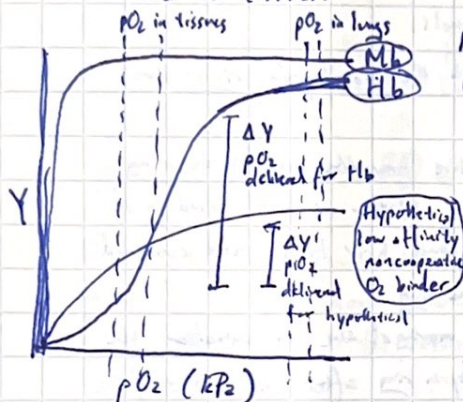 pO₂ in tissues
pO₂ in lungs
Mb
Hb
Δ Y
pO₂
delivered for Hb
Y
Hypothetical
low affinity
noncooperative
O₂ binder
ΔY'
pO₂
delivered
for hypothetical
pO₂ (kPa)